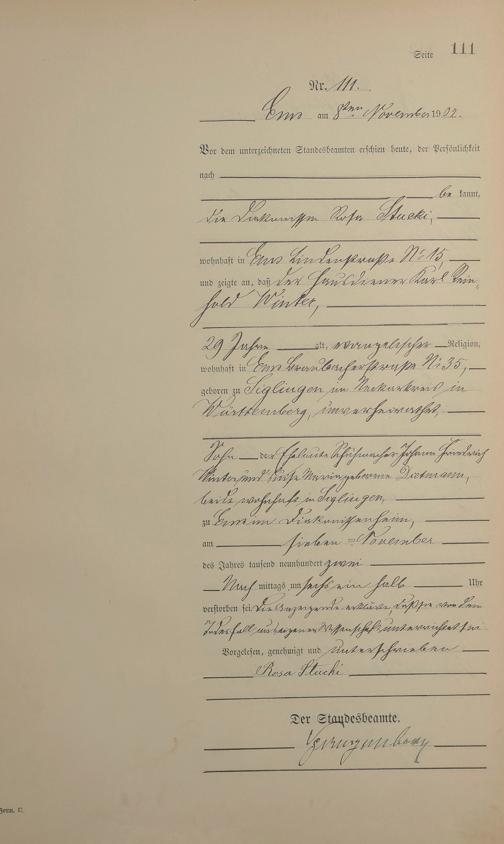 Seite 111
Nr. 111.
Ems am 8ten November 1902.
Vor dem unterzeichneten Standesbeamten erschien heute, der Persönlichkeit
nach
be kannt,
die Diakonissin Rosa Stucki,
wohnhaft in Ems Lindenstraße No 15,
und zeigte an, daß der Hausdiener Karl Rein-
hold Winter,
29 Jahre alt, evangelischer Religion,
wohnhaft in Ems Braubacherstraße No 35,
geboren zu Siglingen im Neckarkreis in
Württemberg, unverheirathet,
Sohn der Eheleute Schuhmacher Johann Friedrich
Winter und Luise Marie geborene Dietmann,
beide wohnhaft in Siglingen,
zu Ems im Diakonissenheim,
am sieben ten November
des Jahres tausend neunhundert zwei
Nach mittags um sechs ein halb Uhr
verstorben sei. Die Anzeigende erklärte, daß sie von dem
Todesfall aus eigener Wissenschaft unterrichtet sei
Vorgelesen, genehmigt und unterschrieben
Rosa Stucki
Der Standesbeamte.